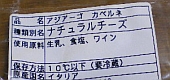 品名 アジアーゴ カベルネ
種類別 ナチュラルチーズ
使用原料 生乳、食塩、ワイン
保存方法 10℃以下(要冷蔵)
原産国名 イタリア